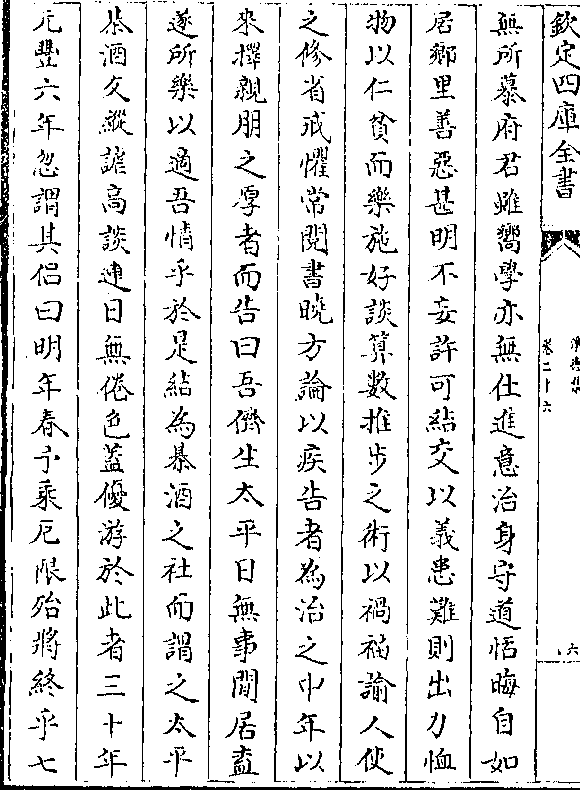 欽定四庫全書
淨德集
卷二十六
六
無所慕府君雖嚮學亦無仕進意治身守道恬晦自如
居鄉里善惡甚明不妄許可結交以義患難則出力恤
物以仁貧而樂施好談算數推步之術以禍福諭人使
之修省戒懼常閱書曉方論以疾告者為治之中年以
來擇親朋之厚者而告曰吾儕生太平日無事閒居盍
遂所樂以適吾情乎於是結為棊酒之社而謂之太平
棊酒文縱謔高談連日無倦色蓋優游於此者三十年
元豐六年忽謂其侶曰明年春予乘厄限殆將終乎七